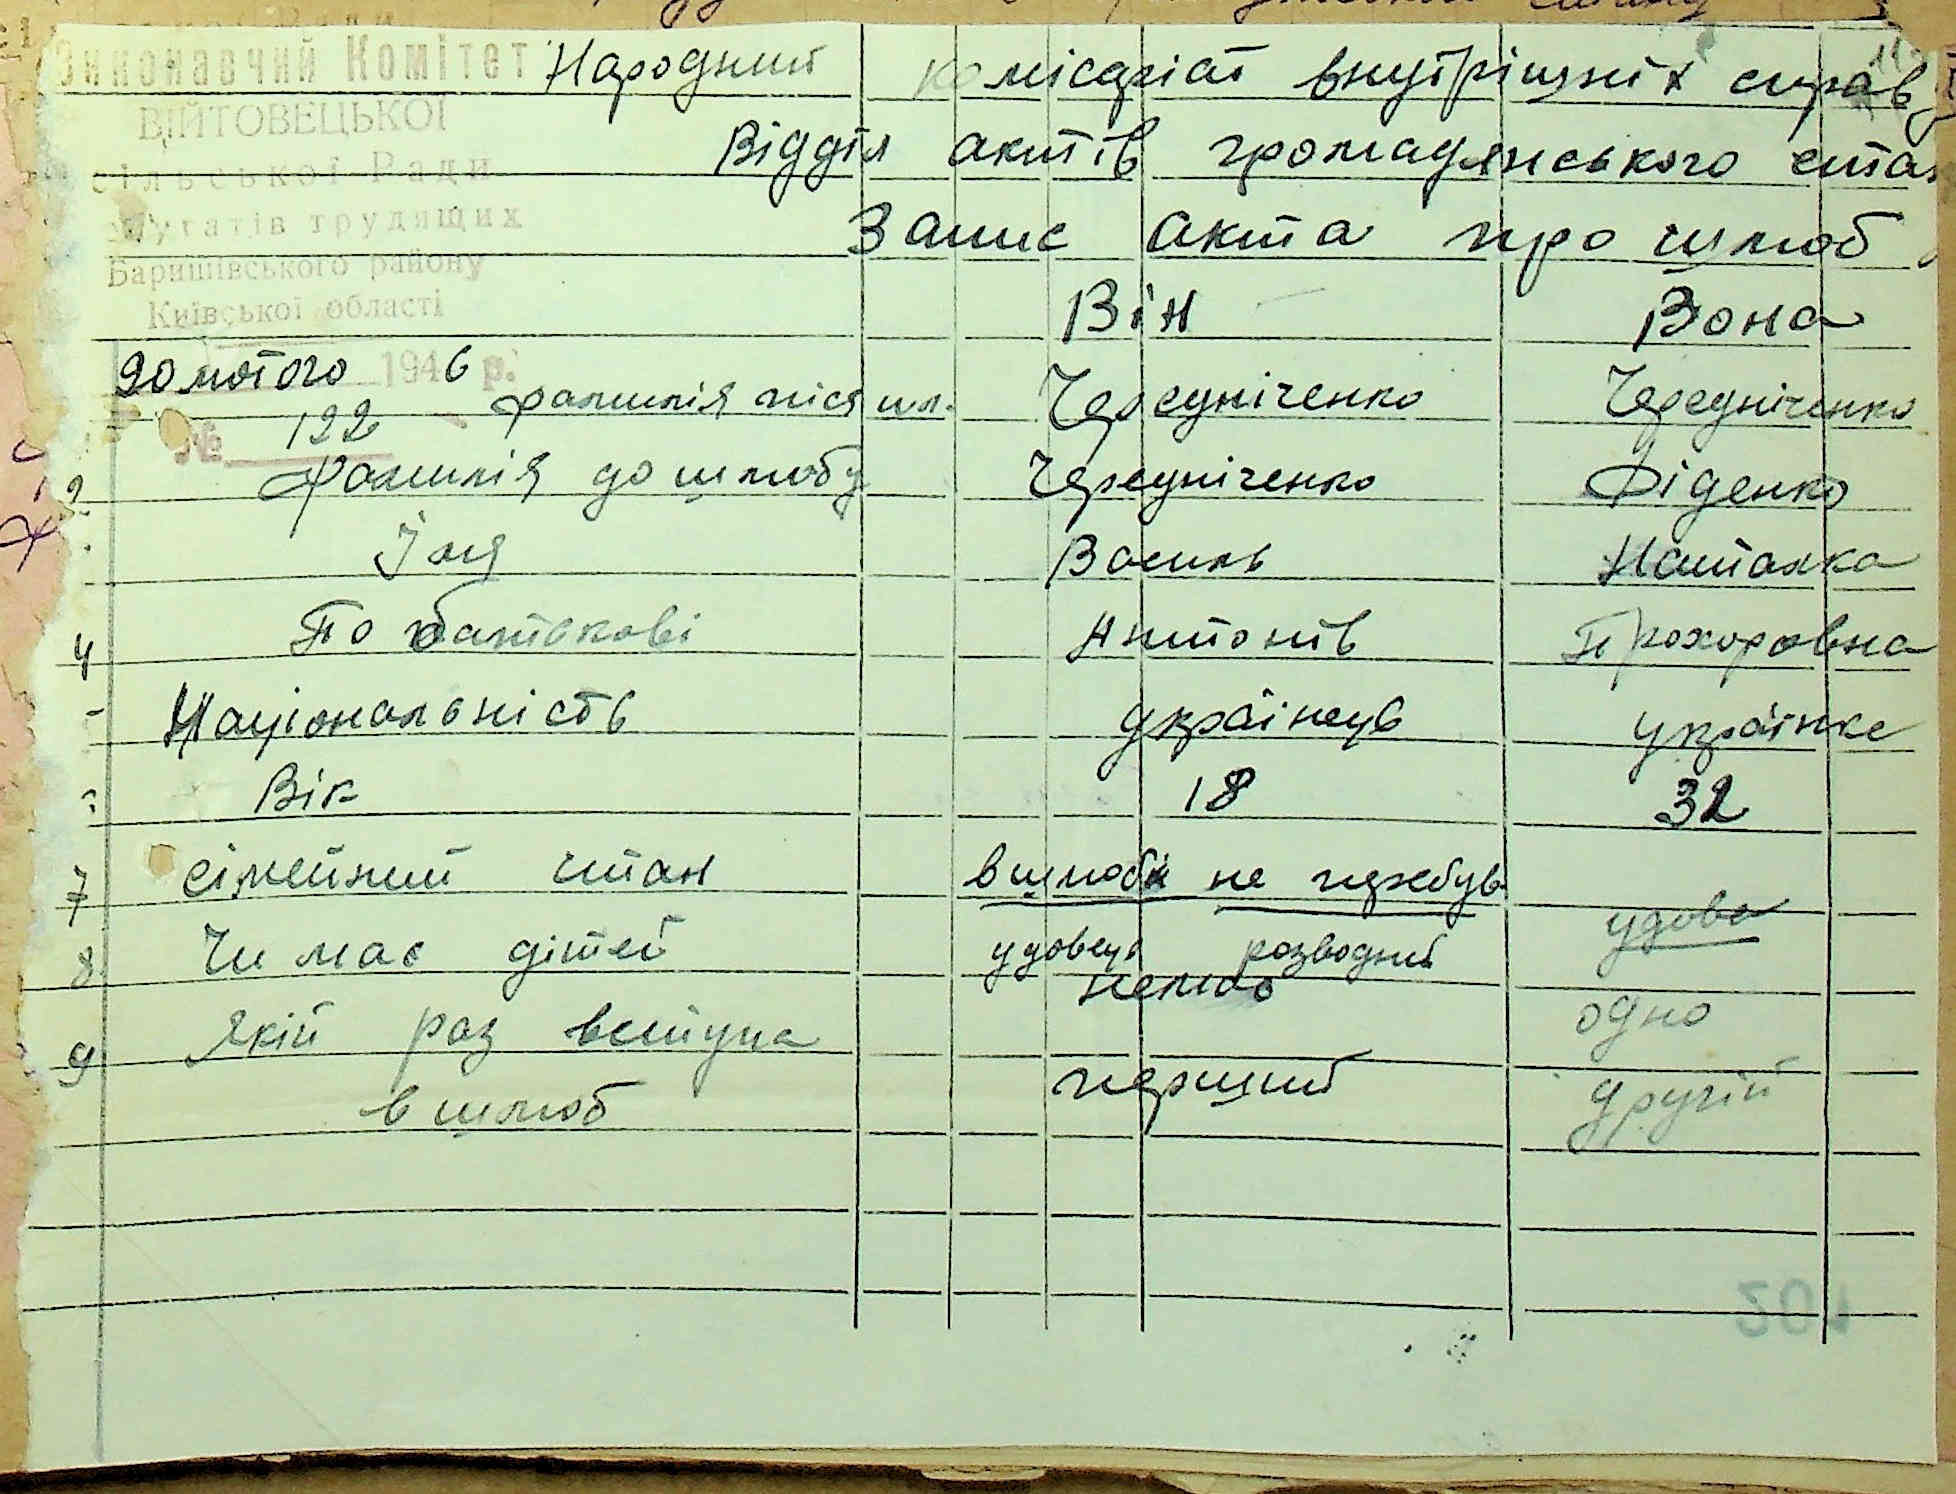 Виконавчий Комітет Народний комісаріат внутрішніх справ
ВІЙТОВЕЦЬКОЇ
Відділ актів громадянського стан
сільської Ради
депутатів трудящих
Запис акта про шлюб
Баришівського району
Київської області
Він Вона
20 лютого 1946 р.
фамилія після шл. Чередніченко Чередніченко
№ 122
2 фамилія до шлюбу Чередніченко Діденко
Імя Василь Наталка
4 По батькові Антонів Прохоровна
Національність українець українке
Вік 18 32
7 сімейний стан в шлюбі не перебув удова
8 Чи має дітей удовець розводний
немає одно
9 Якій раз вступа
в шлюб перший другій
201